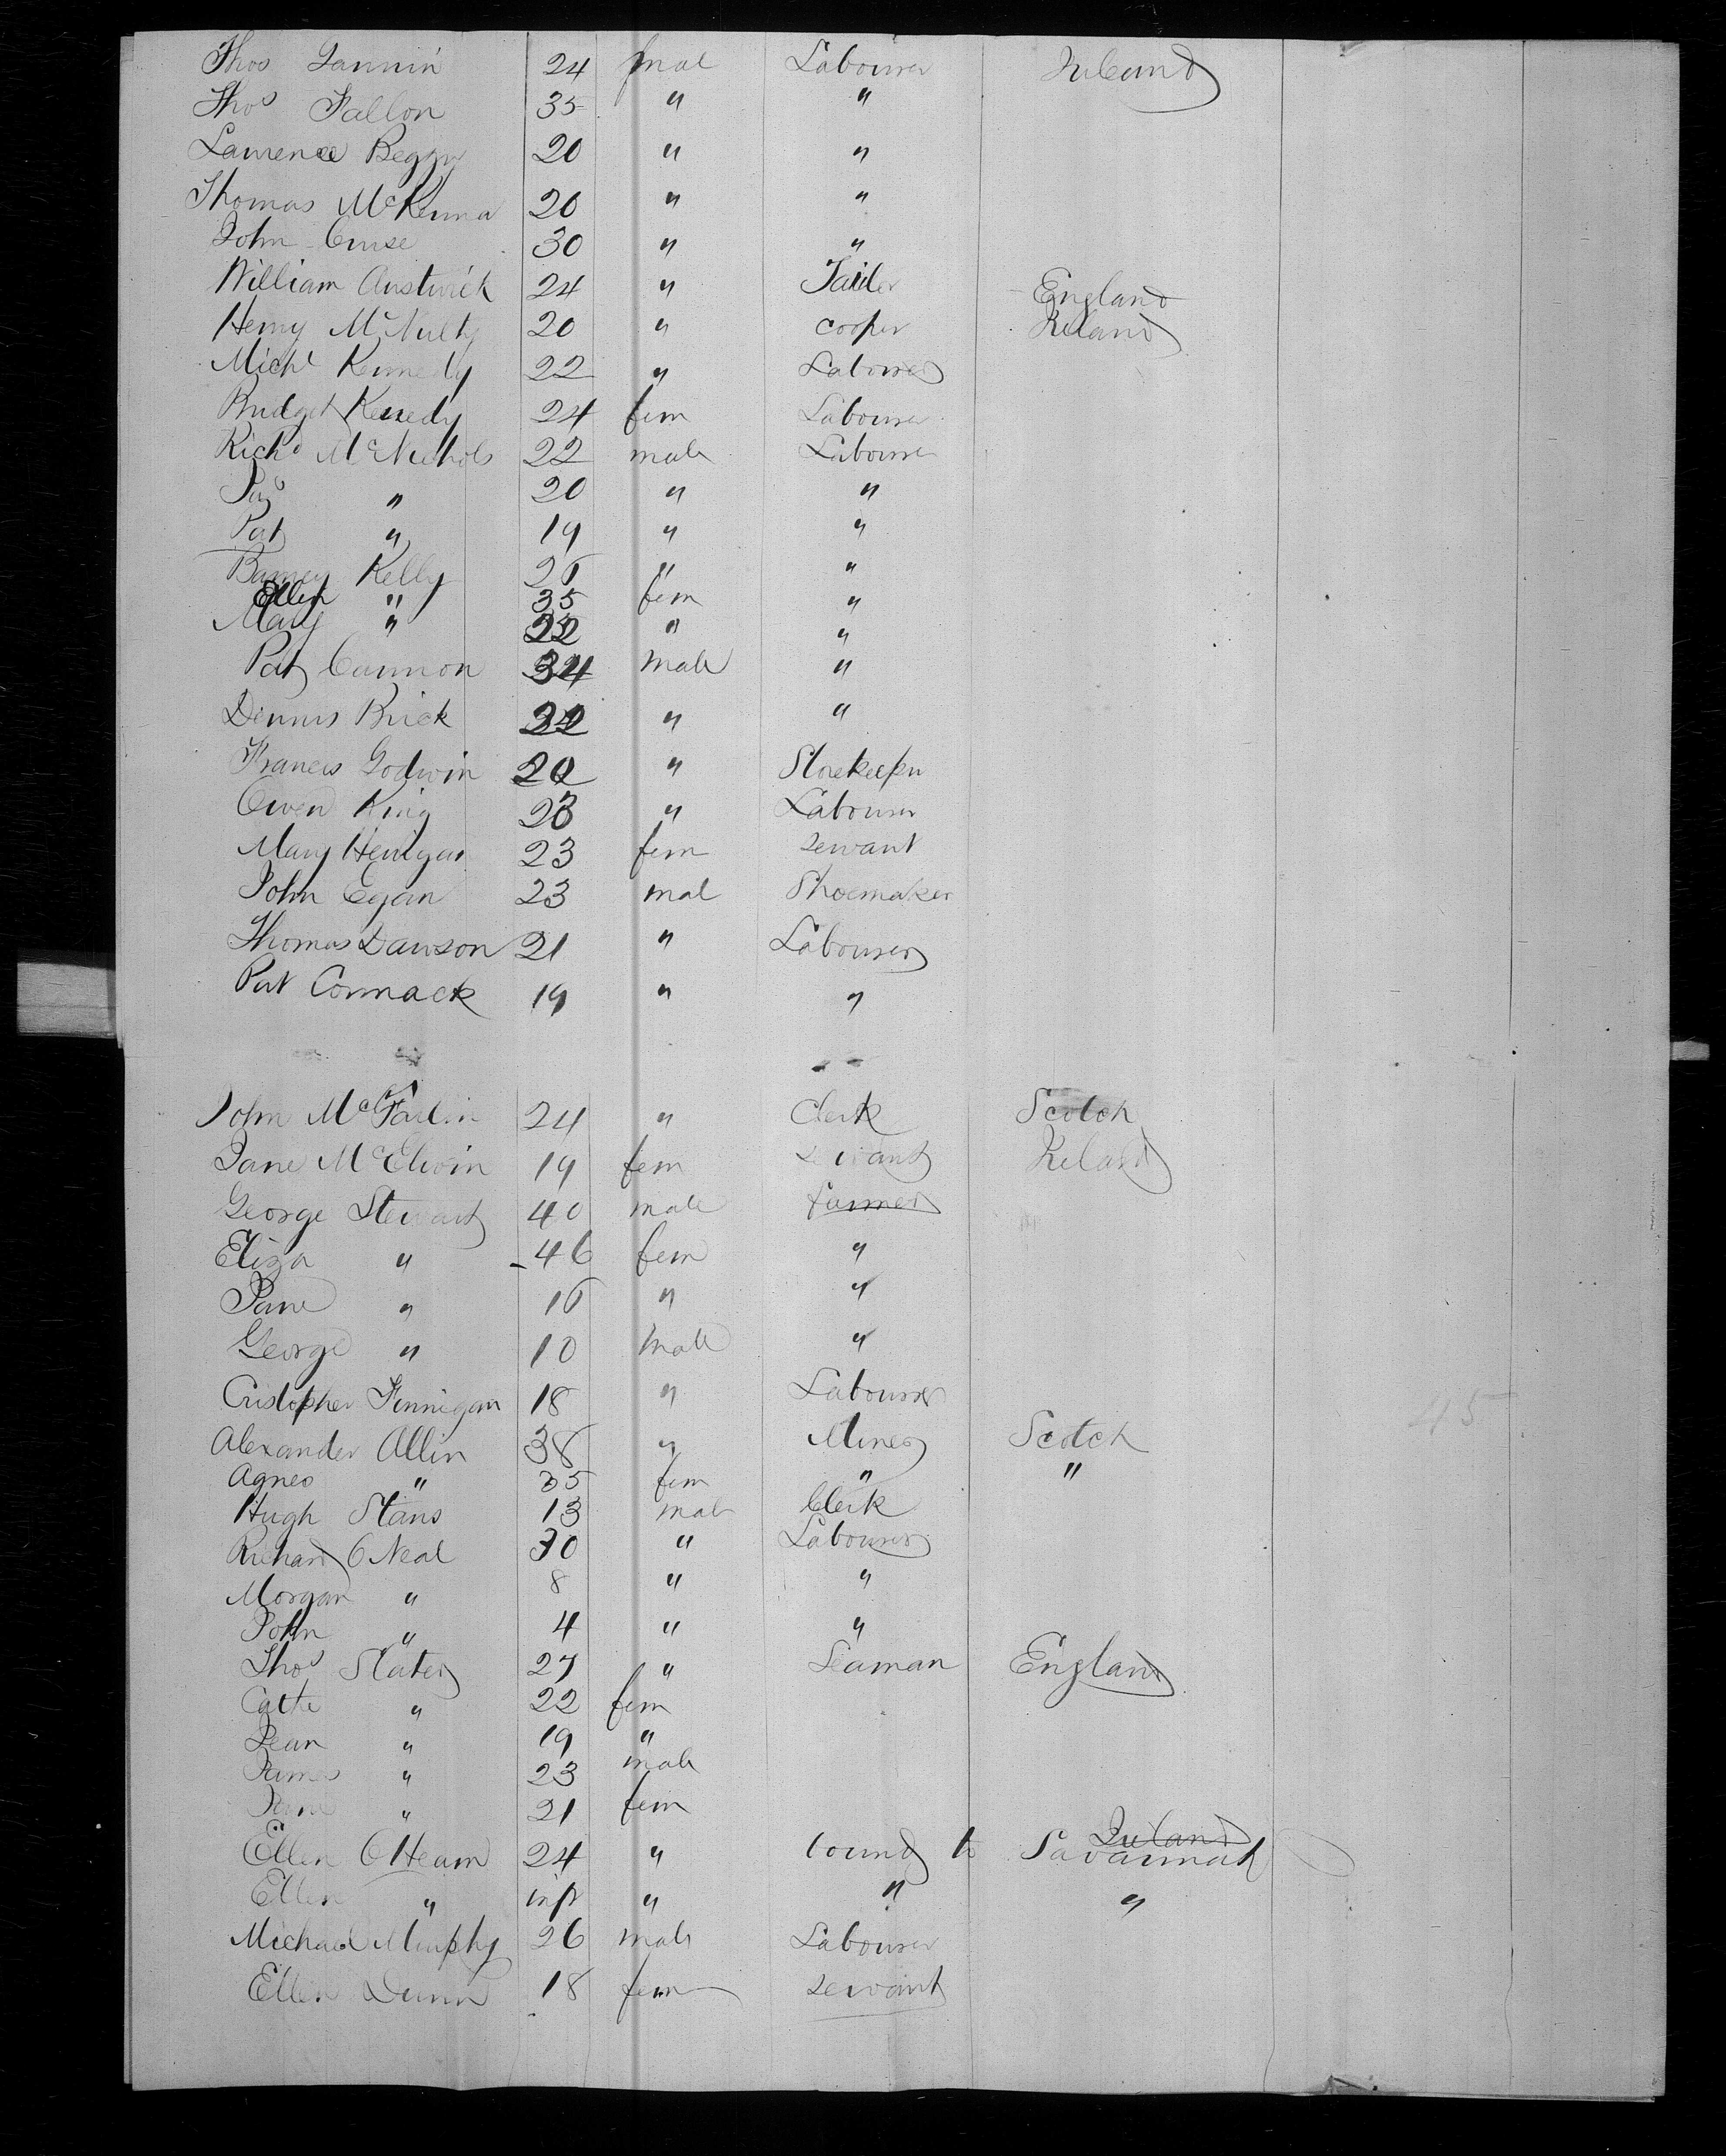 Thos Tannin 24 mal Labourer Ireland
Thos Fallon 35 " "
Lawrence Beggy 20 " "
Thomas McKenna 20 " "
John Cruse 30 " "
William Austwick 24 " Tailer England
Henry McNulty 20 " cooper Ireland
Michl Kennedy 22 " Labourer
Bridget Kenedy 24 fem Labourer
Richd McNichols 22 male Labourer
" 20 " "
Pat " 19 " "
Barney Kelly " "
Ellen " 35 fem "
Mary " 22 " "
Pat Cannon 34 male "
Dennis Brick " "
Francis Godwin 20 " Storekeeper
Owen King 23 " Labourer
Mary Henigan 23 fem servant
John Egan 23 mal Shoemaker
Thomas Dawson 21 " Labourer
Pat Cormack 19 " "
John McFarlin 24 " Clerk Scotch
Jane McElwin 19 fem servant Ireland
George Stewart 40 male farmer
Eliza " 46 fem "
Jane " 16 " "
George " 10 male "
Cristopher Finnigan 18 " Labourer
45
Alexander Allin 38 " Miner Scotch
Agnes " 35 fem " "
Hugh Stans 13 male Clerk
Richard ONeal 30 " Labourer
Morgan " 8 " "
John " 4 " "
Thos Slater 27 " Seaman England
Cathe " 22 fem
Jean " 19 "
James " 23 male
Jane " 21 fem
Ireland
Ellen OHearn 24 " bound to Savannah
Ellen " inft " " "
Michael Murphy 26 male Labourer
Ellen Dunn 18 fem servant